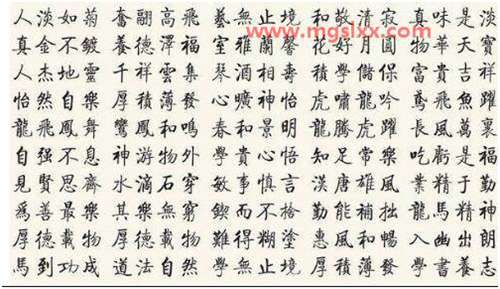 人淡如菊 奮翮高飛 藝無止境 和敬清寂 真味是淡
www.mgslxx.com
真金不鍍 養德澤福 室雅蘭馨 花好月圓 物華天寶
人杰地靈 千祥雲集 琴 相壽 學儲保 富貴吉祥
怡然自樂 厚積薄發 心曠神怡 虎嘯龍吟 鳶飛魚躍
龍飛鳳舞 鸞鳳和鳴 春和景明 龍騰虎躍 長風萬裏
自强不息 神游物外 學貴心悟 知足常樂 吃虧是福
見賢思齊 水滴石穿 敏事慎言 漢唐雄風 業精于勤
爲善最樂 其樂無窮 鍥而不捨 勤能補拙 龍馬精神
厚德載物 厚德載物 難得糊塗 惠風和暢 入幽出朗
馬到功成 道法自然 學無止境 厚積薄發 學書養志